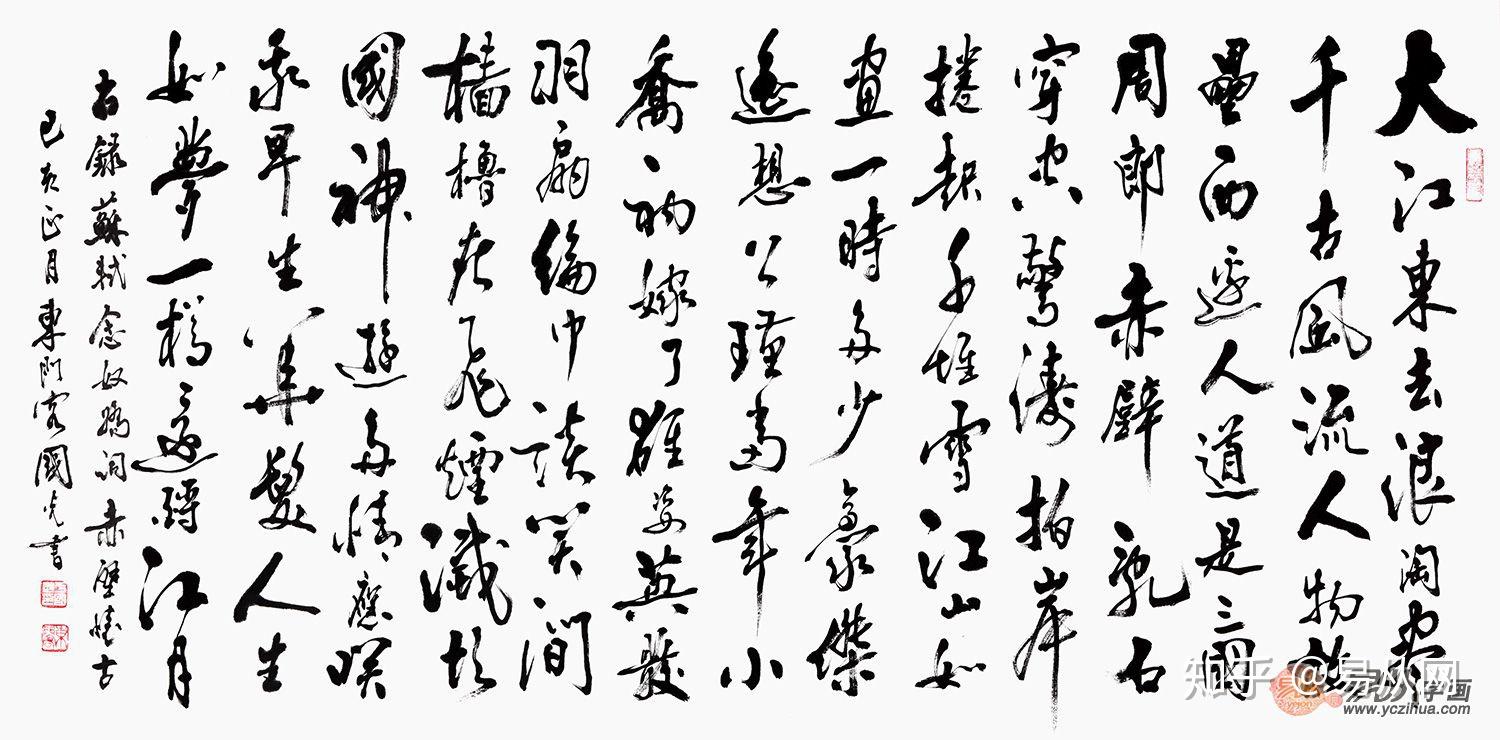 大江東去浪淘盡
千古風流人物故
壘西邊人道是三國
周郎赤壁亂石
穿空驚濤拍岸
捲起千堆雪江山如
畫一時多少豪傑
遙想公瑾當年小
喬初嫁了雄姿英發
羽扇綸巾談笑間
檣櫓灰飛煙滅故
國神遊多情應笑
我早生華髮人生
如夢一樽還酹江月
右錄蘇軾念奴嬌詞赤壁懷古
己亥正月東門客國光書
知乎 @易从网
www.yczihua.com